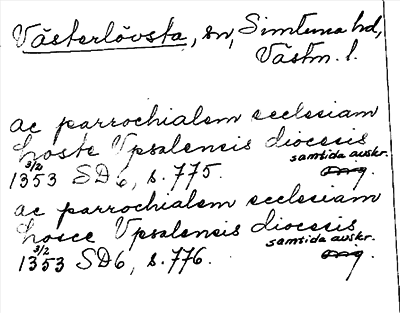 Västerlövsta, sn, Simtuna hd,
Västm. l.
ac parrochialem ecclesiam
Loste Upsalensis diocesis
3/2 samtida avskr.
1353 SD 6, s. 775. orig.
ac parrochialem ecclesiam
Losce Upsalensis diocesis
3/2 samtida avskr.
1353 SD 6, s. 776. orig.